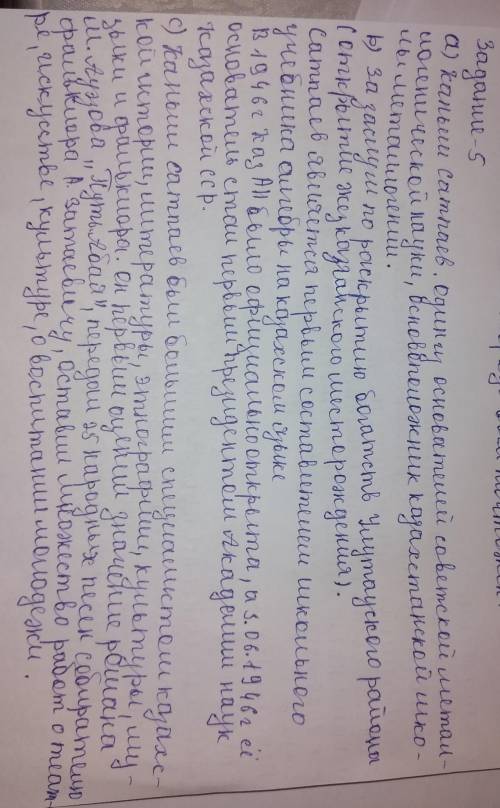 Задание-5
а) Каныш Сатпаев. один из основателей советской метал-
логенической науки, основоположник казахстанской шко-
лы металлогении.
b) За заслуги по раскрытию богатств Улутауского района
(открытие жезказганского месторождения).
Сатпаев является первым составителем школьного
учебника алгебры на казахском языке
В 1946 г Каз АН было официально открыта, а 3.06.1946 г её
основатель стал первым президентом Академии наук
Казахской сср.
с) Каныш сатпаев был большим специалистом казахс-
кой истории, литературы, этнографии, культуры, му-
зыки и фольклора. он первым оценил значение романа
М. Ауэзова "Путь Абая", передал 25 народных песен собирателю
фольклора А. Затаевичу, оставил множество работ о теат-
ре, искусстве, культуре, о воспитании молодежи.